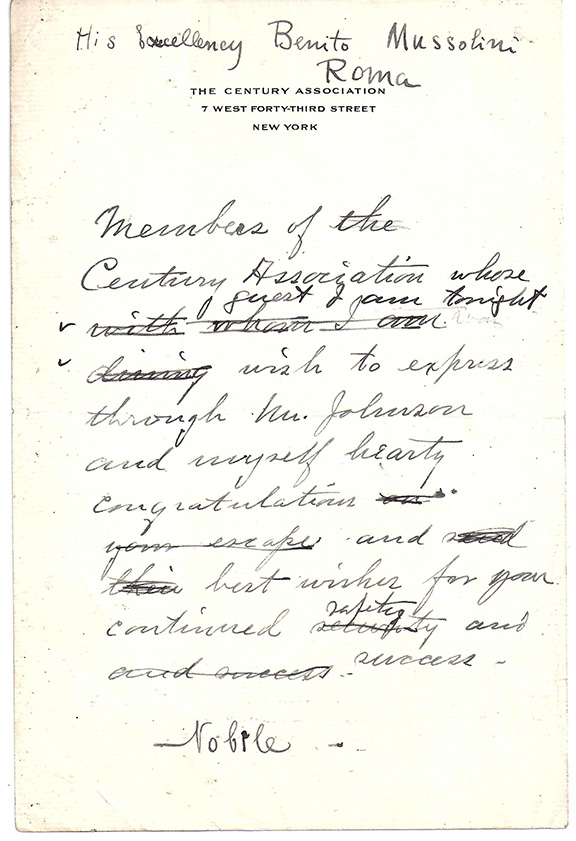 His Excellency Benito Mussolini
Roma
THE CENTURY ASSOCIATION
7 WEST FORTY-THIRD STREET
NEW YORK
Members of the
Century Association whose
guest I am tonight
with whom I am
dining wish to express
through Mr. Johnson
and myself hearty
congratulations on
your escape and send
their best wishes for your
safety
continued security and
and success - success -
- Nobile - -